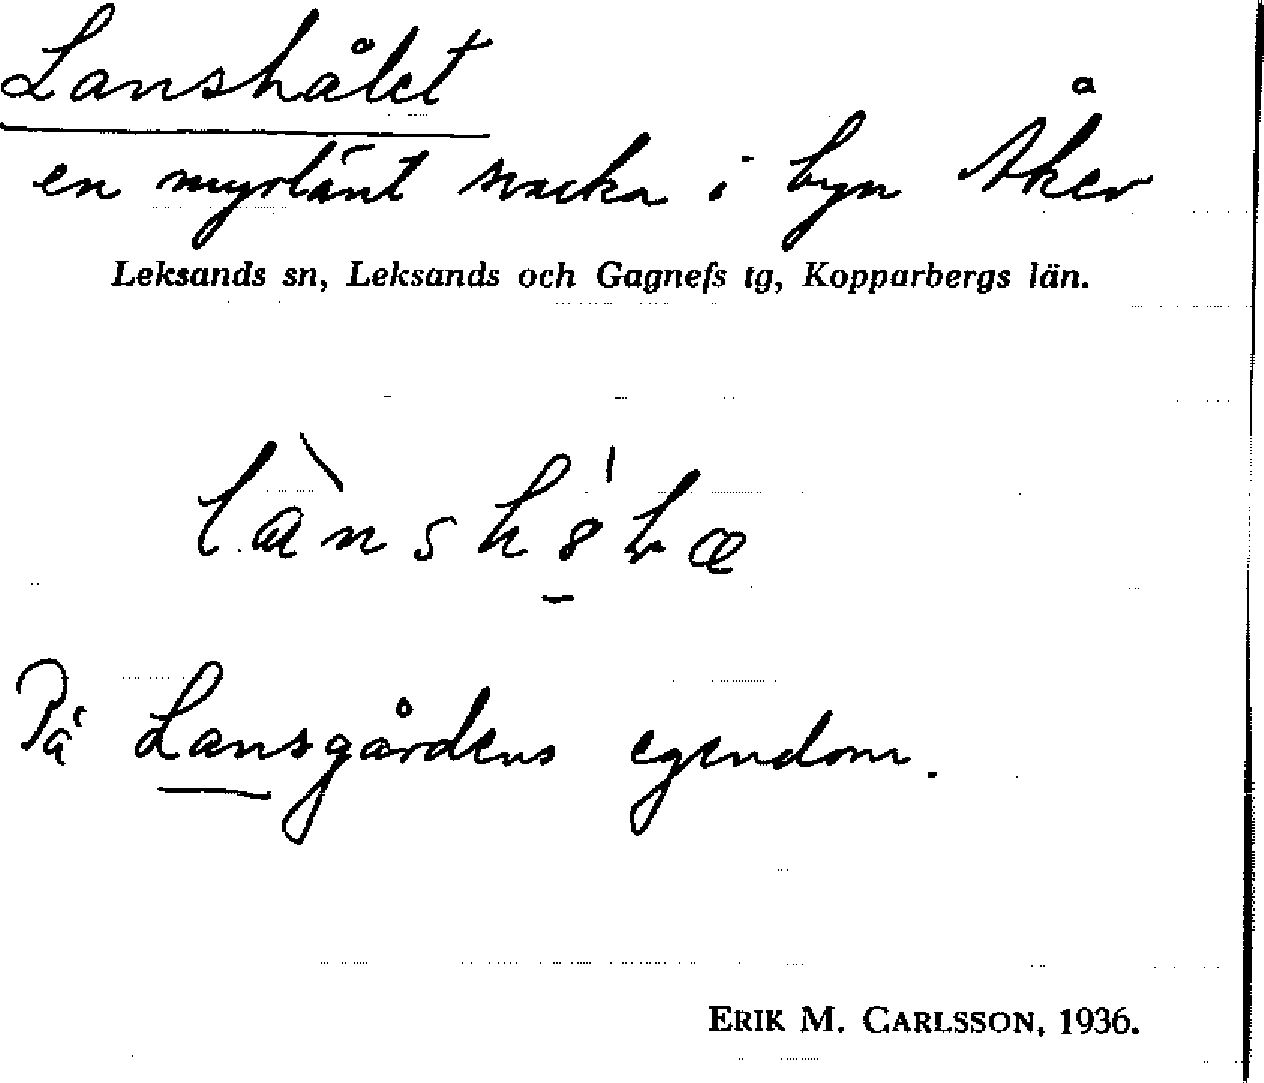 Lanshålet
en myrlänt svacka i byn Åker
Leksands sn, Leksands och Gagnefs tg, Kopparbergs län.
På Lansgårdens egendom.
ERIK M. CARLSSON, 1936.